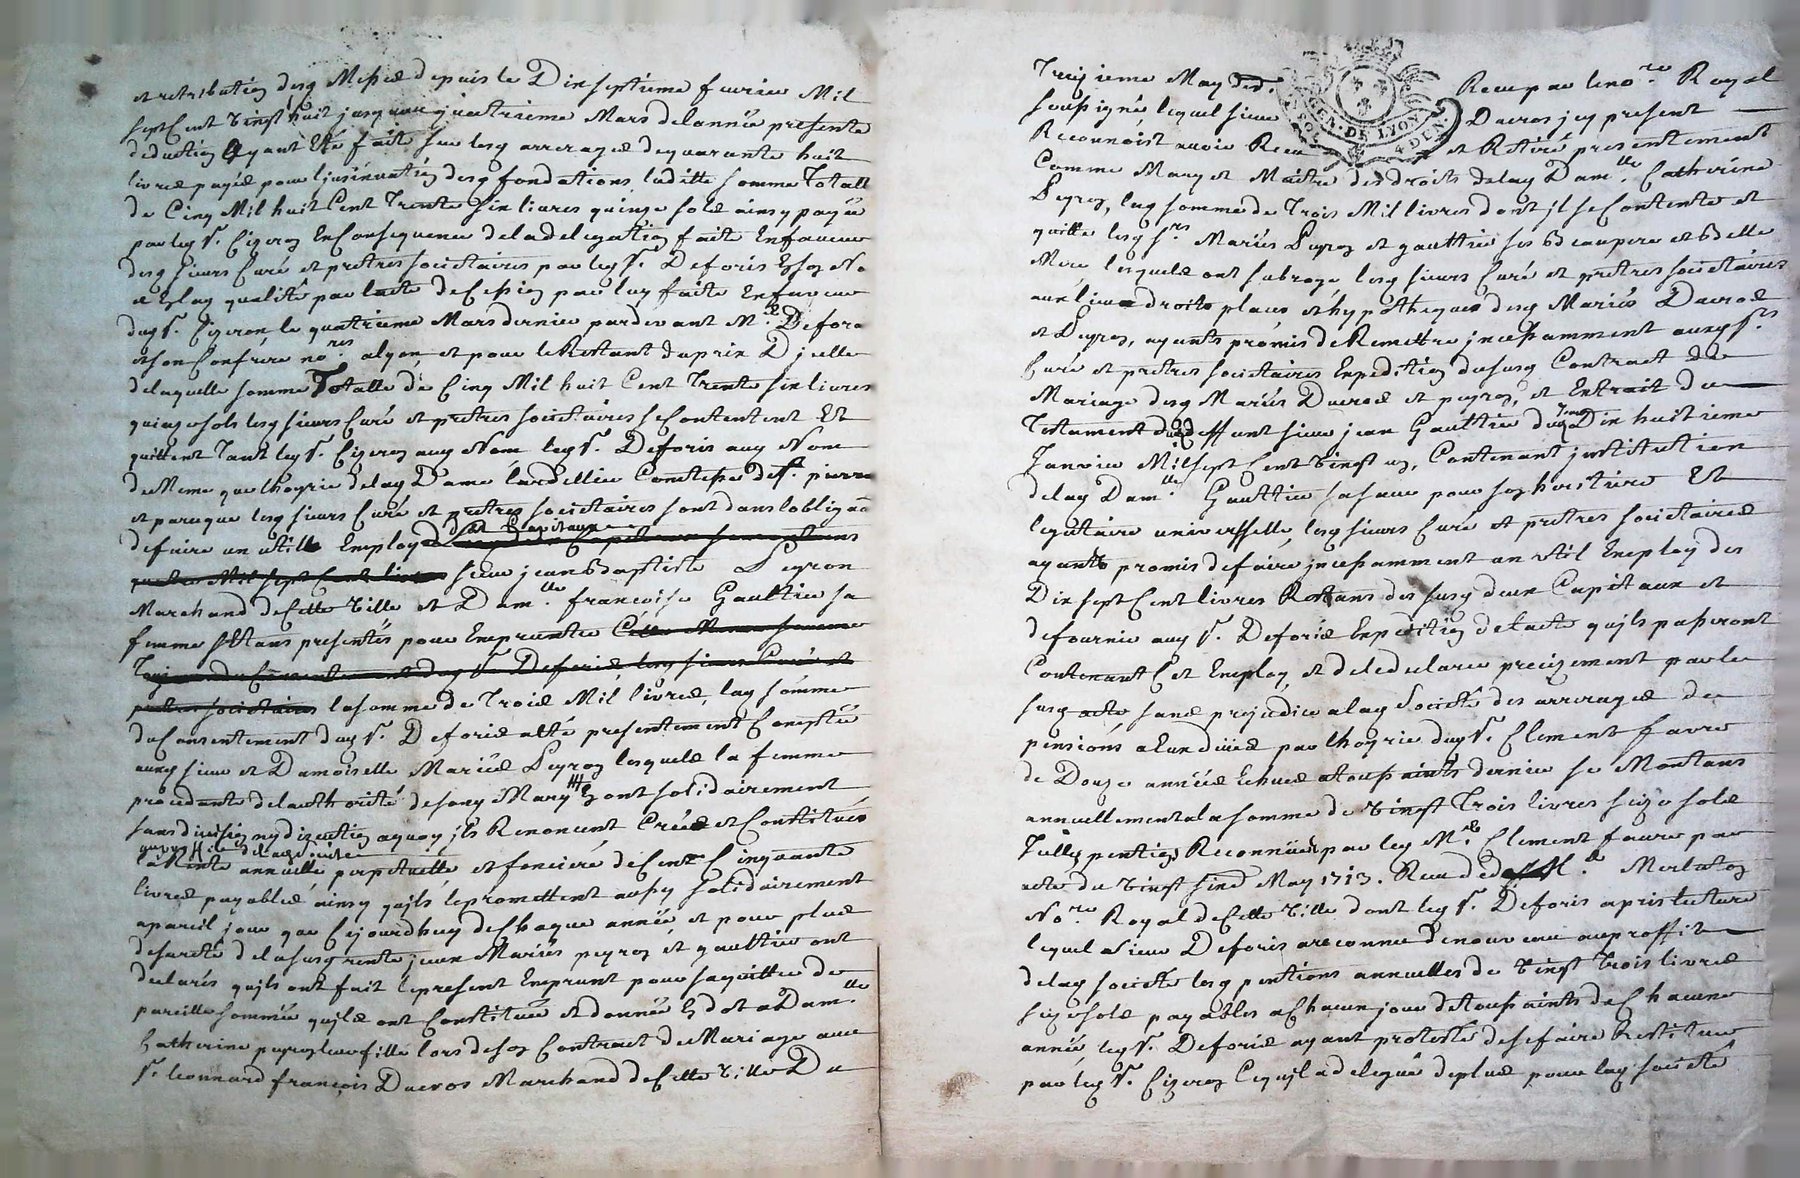 et retribution desq Messes depuis le Dixseptieme fevrier Mil
sept Cent vingt huit jusquau quatrieme Mars de lannée presente
deduction ayant Eté faite sur lesq arrerages de quarante huit
livres payés pour linsinuation desq fondations, laditte somme Totalle
de Cinq Mil huit Cent Trente six livres quinze sols ainsy payée
par leq Sr. Cizeron En Consequence de la delegation faite En faveur
desq sieurs Curé et pretres societaires par leq Sr. Deforis Esq No
et Eslaq qualité par lacte de Cession par luy faite En faveur
duq Sr. Cizeron le quatrieme Mars dernier pardevant Me. Defora
et son Confrere nores. a lyon et pour le Restant du prix Dicelle
de laquelle somme Totalle de Cinq Mil huit Cent Trente six livres
quinze sols lesq sieurs Curé et pretres societaires se Contentent Et
quittent Tant leq Sr. Cizeron auq Nom leq Sr. Deforis auq Nom
de Meme que lhoyrie de laq Dame Comtesse de St. pierre
et parceque lesq sieurs Curé et pretres societaires sont dans lobligaon
de faire un utille Employ des Capitaux
sieur jean Baptiste Peyron
Marchand de Cette ville et Damlle. francoise Gaultier sa
femme s'Etans presentés pour Emprunter
la somme de Trois Mil livres, laq somme
du Consentement duq Sr. Deforis a eté presentement Comptée
auxq sieur et Damoiselle Mariés Peyron lesquels la femme
procedante de lauthorité de sonq Mary Et ont solidairement
sans division ny discution a quoy ils Renoncent Créé et Constitué
la Rente annuelle perpetuelle et fonciere de Cent Cinquante
livres payables ainsy quils le promettent aussy solidairement
a pareil jour que Cejourdhuy de Chaque année, et pour plus
de sureté de la susq rente jceux Mariés peyron et gaultier ont
declarés quils ont fait le present Emprunt pour saquitter de
pareille somme quils ont Constituée et donnée En dot a Damlle.
Catherine peyron leur fille lors de son Contract de Mariage avec
Sr. leonnard françois Ducros Marchand de Cette ville Du
Treizieme May der. Receu par le nore. Royal
soussigné, lequel sieur Ducros jcy present
Reconnoist avoir Receu et Retiré presentement
Comme Mary et Maitre des droits de laq Damlle. Catherine
Peyron, laq somme de Trois Mil livres dont jl se Contente et
quitte lesq Srs. Mariés Peyron et gaultier ses beaupere et belle
Mere lesquels ont subrogé lesq sieurs Curé et pretres societaires
aux lieux droits places et hypotheques desq Mariés Ducros
et Peyron, ayants promis de Remettre jncessamment auxq Srs
Curé et pretres societaires Expedition du susq Contract de
Mariage desq Mariés Ducros et peyron, et Extrait du
Testament dudeffunt sieur jean Gaultier du Dix huitieme
Janvier Mil sept Cent vingt un, Contenant jnstitution
de laq Damlle. Gaultier sa sœur pour son heritiere Et
legataire universselle, lesq sieurs Curé et pretres societaires
ayants promis de faire jncessamment un util Employ des
Dix sept Cent livres Restans des susq deux Capitaux et
de fournir auq Sr. Deforis Expedition de lacte quils passeront
Contenant Cet Employ, et de le declarer precizement par le
susq acte sans prejudice a laq Societé des arrerages de
pensions a Eux dües par lhoyrie duq Sr. Clement favre
de Douze années Echües a toussaints dernier se Montans
annuellement a la somme de vingt Trois livres seize sols
Jcelle pention Reconnüe par leq Me. Clement faure par
acte du vingt sixe May 1713. Receu Me. Merlaton
Nore Royal de Cette ville dont leq Sr. Deforis a pris lecture
lequel sieur Deforis a reconnu de nouveau au proffit
de laq societé lesq pentions annuelles de vingt Trois livres
seize sols payables a Chacun jour de toussaints de Chacune
année, leq Sr. Deforis ayant protesté de se faire Restituer
par leq Sr. Cizeron Ce quil a delegué de plus pour laq societé